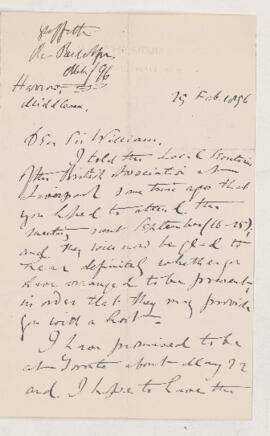 Griffith
Harrow
Middlesex.
29 Feb. 1896
Dear Sir William,
I told the Local Secretaries
of the British Association at
Liverpool some time ago that
you hoped to attend the
meeting next September (16-23),
and they will now be glad to
hear definitely whether you
have arranged to be present
in order that they may provide
you with a host.
I have promised to be
at about May 22
and I hope to have the